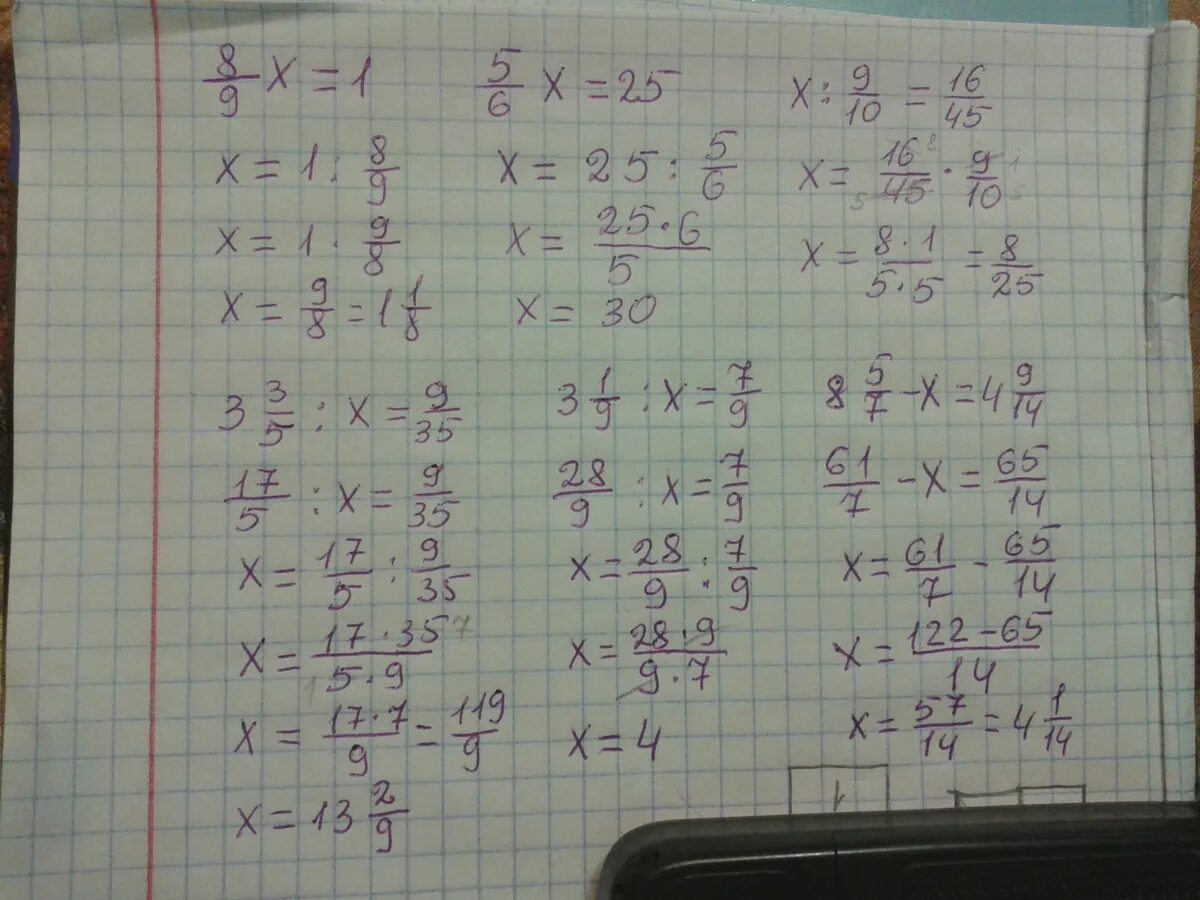 8/9 x = 1
x = 1 : 8/9
x = 1 · 9/8
x = 9/8 = 1 1/8
5/6 x = 25
x = 25 : 5/6
x = 25·6/5
x = 30
x : 9/10 = 16/45
x = 16 8/45 5 · 9 1/10 5
x = 8·1/5·5 = 8/25
3 3/5 : x = 9/35
17/5 : x = 9/35
x = 17/5 : 9/35
x = 17·35 7/1 5·9
x = 17·7/9 = 119/9
x = 13 2/9
3 1/9 : x = 7/9
28/9 : x = 7/9
x = 28/9 : 7/9
x = 28·9/9·7
x = 4
8 5/7 - x = 4 9/14
61/7 - x = 65/14
x = 61/7 - 65/14
x = 122-65/14
x = 57/14 = 4 1/14